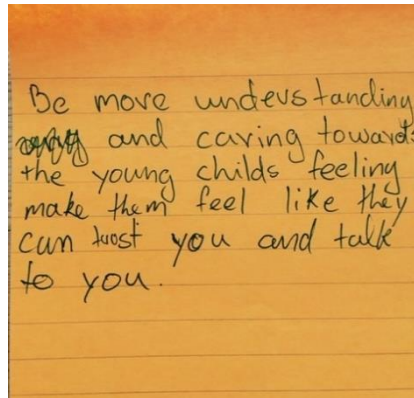 Be more understanding
and caring towards
the young childs feeling
make them feel like they
can trust you and talk
to you.